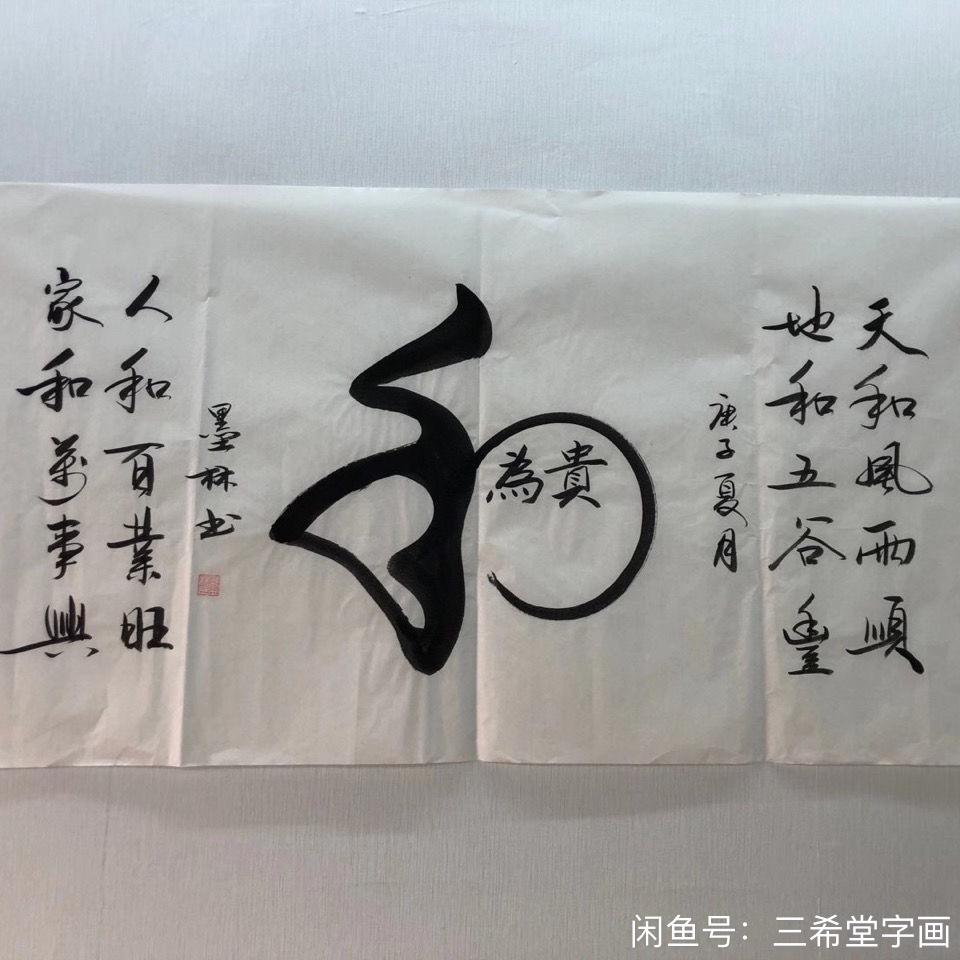 天和風雨順
地和五谷豐
庚子夏月
和
貴為
墨林书
人和百業旺
家和萬事興
闲鱼号：三希堂字画